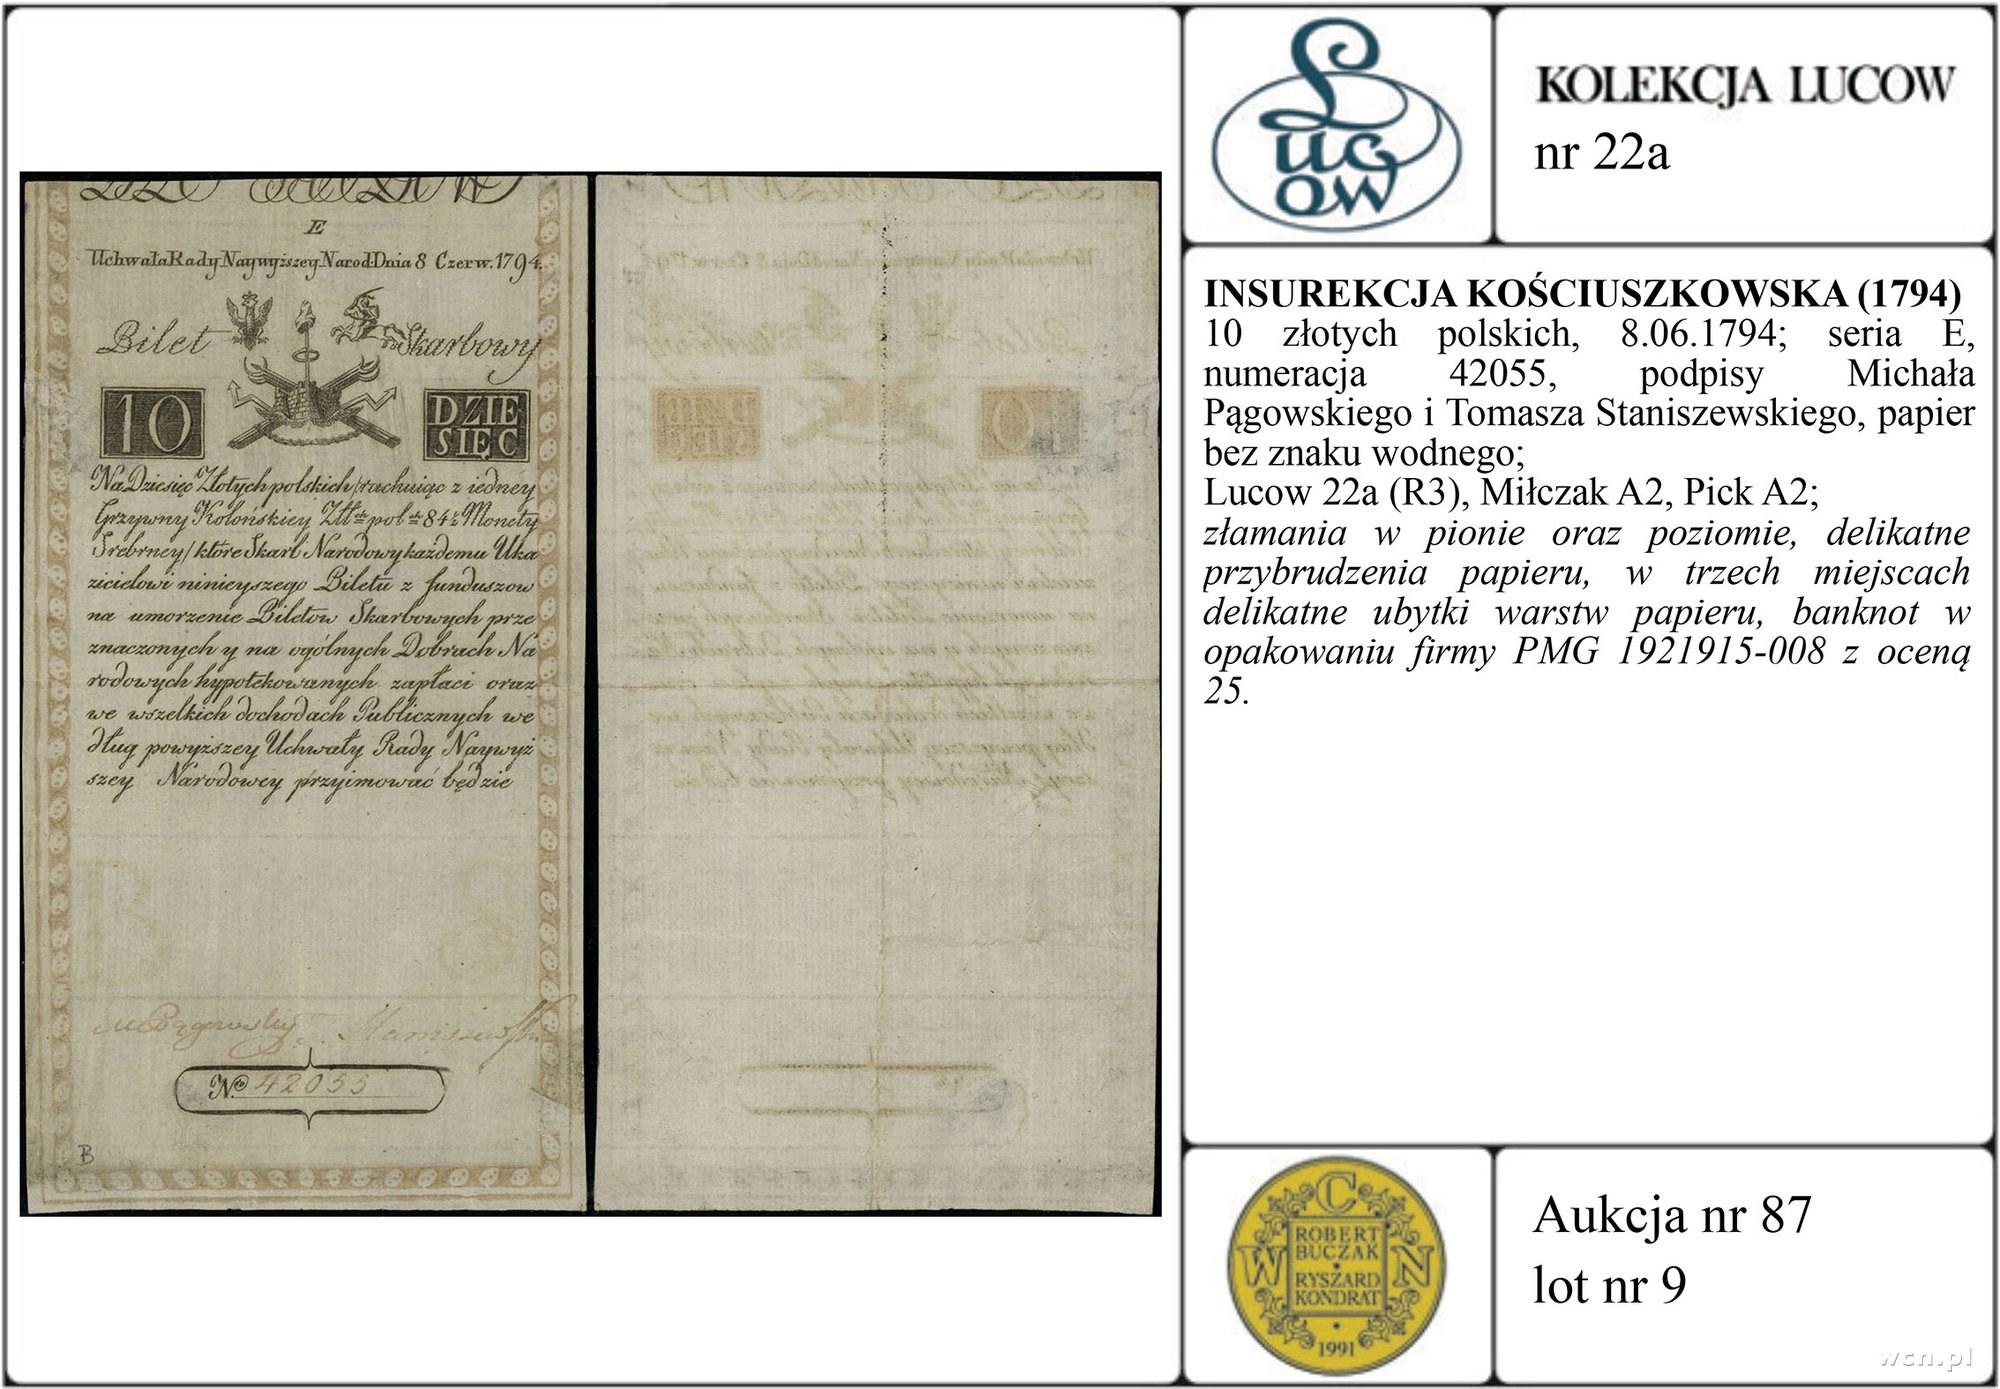 E
Uchwała Rady Naywyższey Narod: Dnia 8 Czerw. 1794.
Bilet Skarbowy
10
DZIE
SIĘC
Na Dziesięc Złotych polskich/rachuiąc z iedney
Grzywny Kolońskiey Złt. pol. 84½ Monety
Srebrney/które Skarb Narodowy każdemu Uka
zicielowi ninieyszego Biletu z funduszow
na umorzenie Biletow Skarbowych prze
znaczonych y na ogólnych Dobrach Na
rodowych hypotekowanych zapłaci oraz
we wszelkich dochodach Publicznych we
dług powyższey Uchwały Rady Naywyż
szey Narodowey przyimować będzie
M Pągowski T. Staniszewski
No 42055
B
Lucow
KOLEKCJA LUCOW
nr 22a
INSUREKCJA KOŚCIUSZKOWSKA (1794)
10 złotych polskich, 8.06.1794; seria E,
numeracja 42055, podpisy Michała
Pągowskiego i Tomasza Staniszewskiego, papier
bez znaku wodnego;
Lucow 22a (R3), Miłczak A2, Pick A2;
złamania w pionie oraz poziomie, delikatne
przybrudzenia papieru, w trzech miejscach
delikatne ubytki warstw papieru, banknot w
opakowaniu firmy PMG 1921915-008 z oceną
25.
W C N
ROBERT
BUCZAK
RYSZARD
KONDRAT
1991
Aukcja nr 87
lot nr 9
wcn.pl